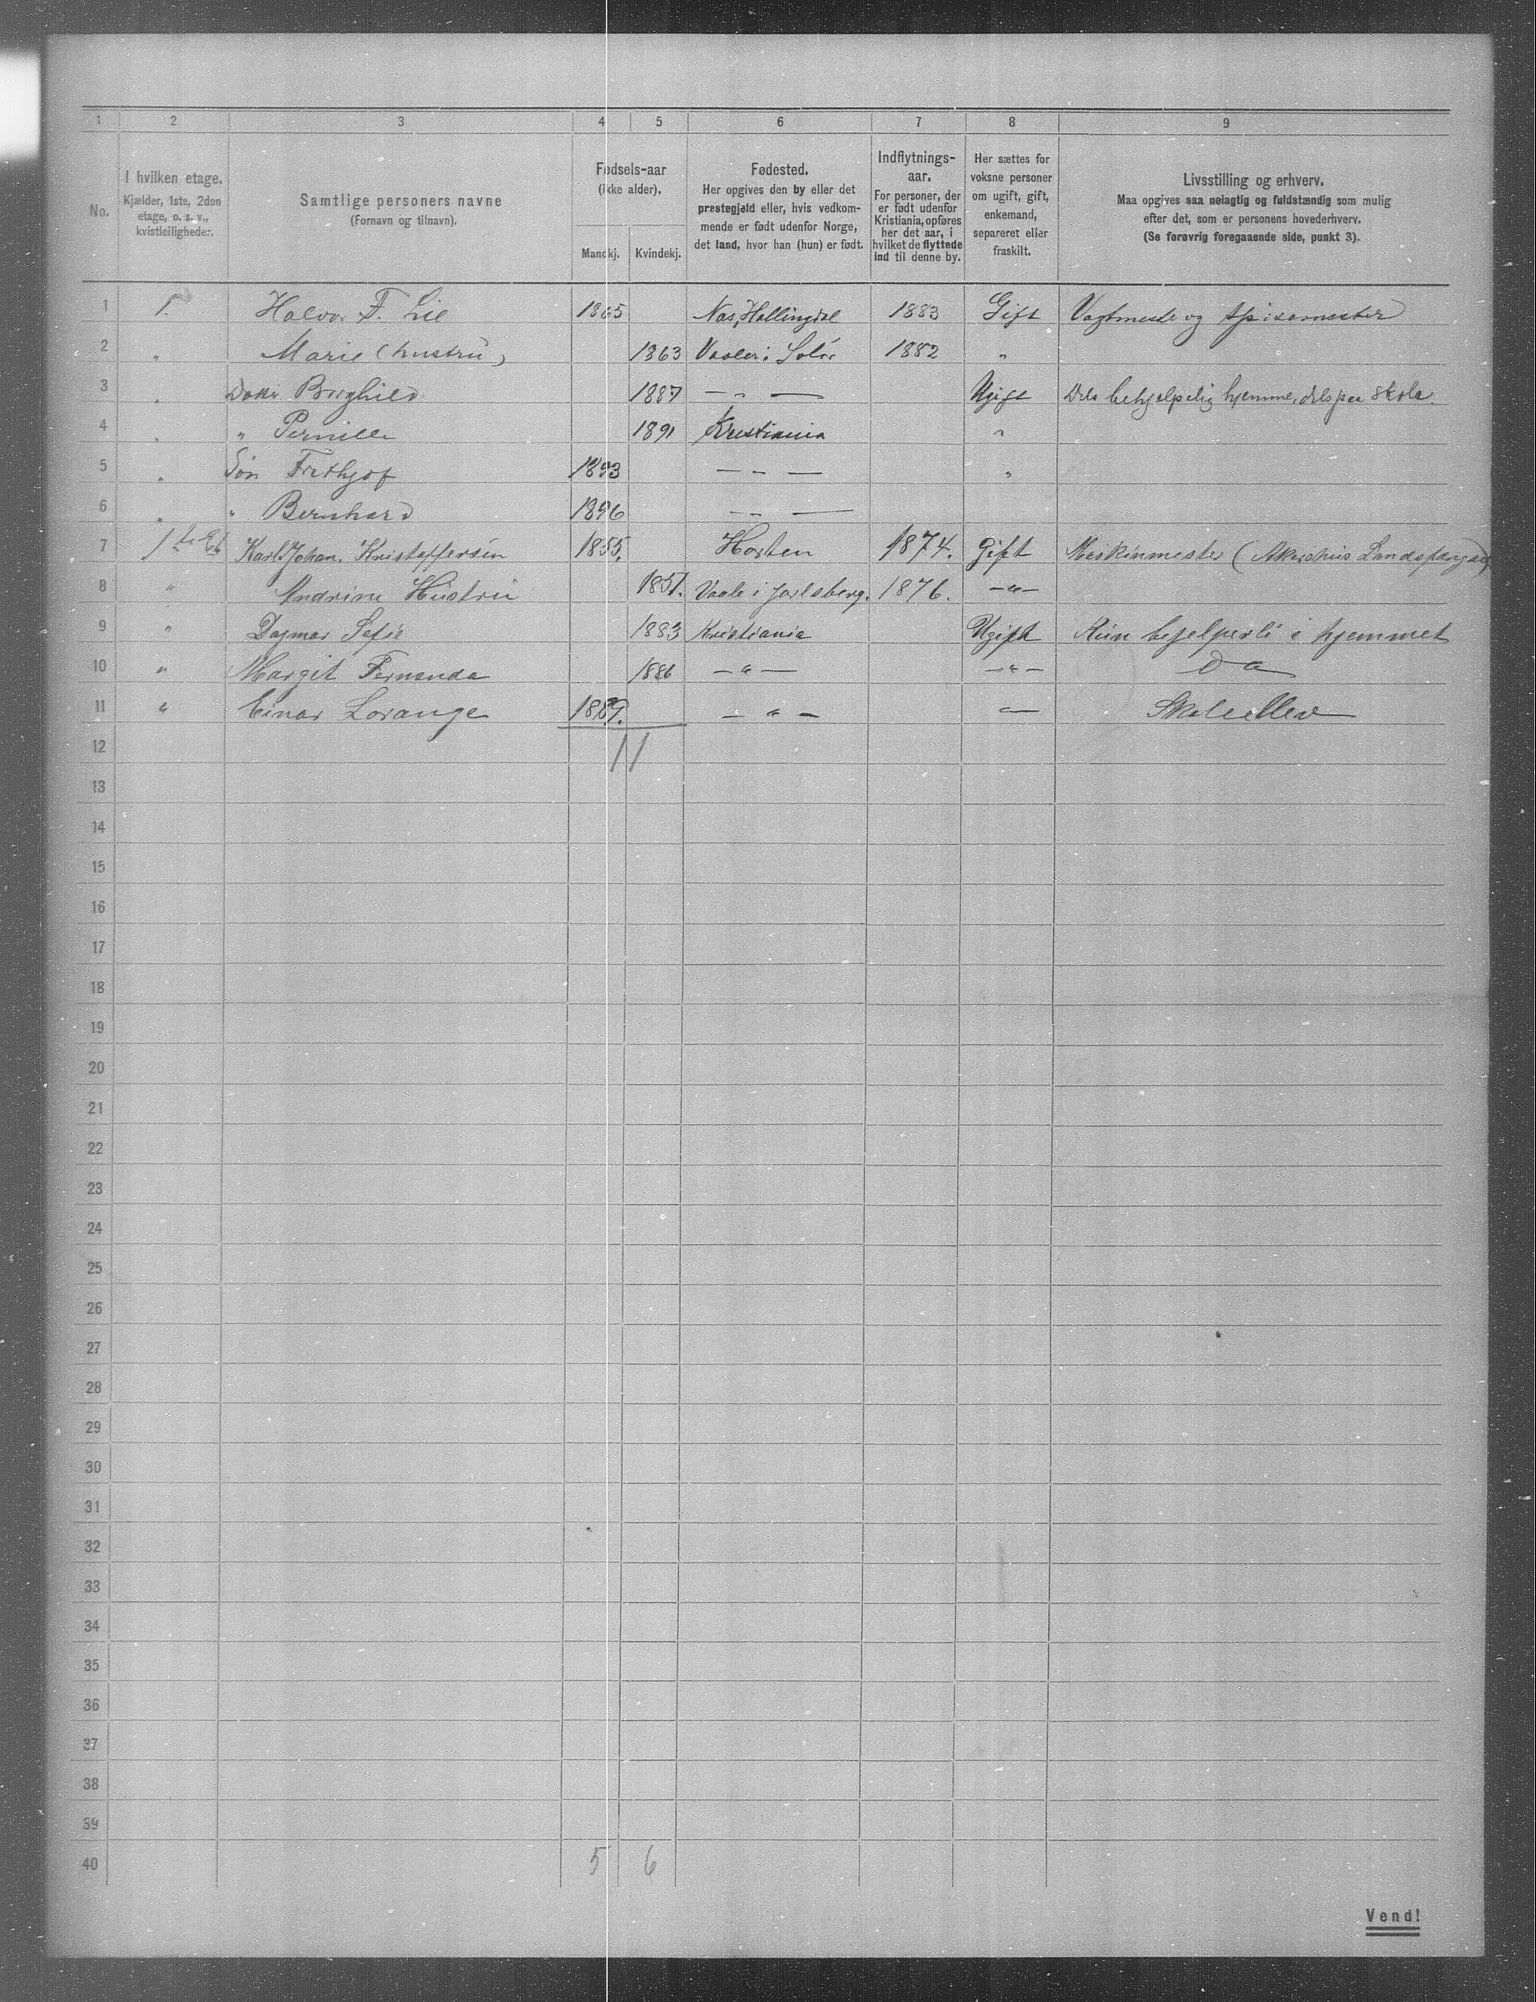 1 2 3 4 5 6 7 8 9
No.
I hvilken etage.
Kjælder, 1ste, 2den
etage, o. s. v.,
kvistleiligheder.
Samtlige personers navne
(Fornavn og tilnavn).
Fødsels-aar
(ikke alder).
Mandkj. Kvindekj.
Fødested.
Her opgives den by eller det
prestegjeld eller, hvis vedkom-
mende er født udenfor Norge,
det land, hvor han (hun) er født.
Indflytnings-
aar.
For personer, der
er født udenfor
Kristiania, opføres
her det aar, i
hvilket de flyttede
ind til denne by.
Her sættes for
voksne personer
om ugift, gift,
enkemand,
separeret eller
fraskilt.
Livsstilling og erhverv.
Maa opgives saa nøiagtig og fuldstændig som mulig
efter det, som er personens hovederhverv.
(Se forøvrig foregaaende side, punkt 3).
1 1. Halvor F. Lie 1865 Næs, Hallingdal 1883 Gift Vagtmester og spisemester
2 " Marie (hustru) 1863 Vaaler i Solør 1882 "
3 " Datter Borghild 1887 — " — Ugift Dels behjelpelig hjemme, dels paa skole
4 " " Pernille 1891 Kristiania "
5 " Søn Frithjof 1893 — " — "
6 " " Bernhard 1896 — " —
7 1ste Et. Karl Johan Kristoffersen 1855. Horten 1874. Gift Maskinmester (Akershus Landsfængsel)
8 " Andrine Hustru 1851. Vaale i Jarlsberg. 1876. — " —
9 " Dagmar Sofie 1883 Kristiania Ugift Kun behjelpeli i hjemmet
10 " Margit Fernanda 1886 — " — — " — Do
11 " Einar Lorange 1889. — " — — " — Skoleellev
12 11
13
14
15
16
17
18
19
20
21
22
23
24
25
26
27
28
29
30
31
32
33
34
35
36
37
38
39
40 5 6
Vend!